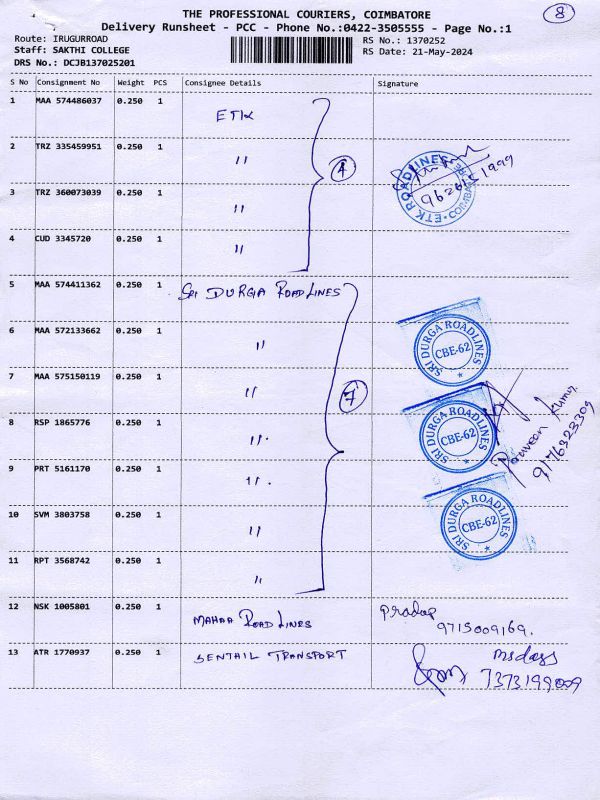 THE PROFESSIONAL COURIERS, COIMBATORE
8
Delivery Runsheet - PCC - Phone No.:0422-3505555 - Page No.:1
Route: IRUGURROAD
RS No.: 1370252
Staff: SAKTHI COLLEGE
RS Date: 21-May-2024
DRS No.: DCJB137025201
S No Consignment No Weight PCS Consignee Details Signature
1 MAA 574486037 0.250 1 ETK
2 TRZ 335459951 0.250 1 "
4
ETK ROADLINES COIMBA
9626151999
3 TRZ 360073039 0.250 1 "
4 CUD 3345720 0.250 1 "
5 MAA 574411362 0.250 1 SRI DURGA ROAD LINES
6 MAA 572133662 0.250 1 "
SRI DURGA ROADLINES CBE-62
7 MAA 575150119 0.250 1 "
7
8 RSP 1865776 0.250 1 "
SRI DURGA ROADLINES CBE-62
Praveen Kumar
9176323309
9 PRT 5161170 0.250 1 "
10 SVM 3803758 0.250 1 "
SRI DURGA ROADLINES CBE-62
11 RPT 3568742 0.250 1 "
12 NSK 1005801 0.250 1 MAHAA ROAD LINES Pradap
9715009169.
13 ATR 1770937 0.250 1 SENTAIL TRANSPORT
7373199009